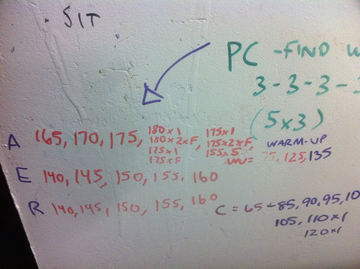 SIT
PC - FIND W
3-3-3-
(5x3)
A 165, 170, 175, 180x1 175x1
180x2xF, 175x2xF,
175x1 155x5
175xF WU=
WARM-UP
75, 125, 135
E 140, 145, 150, 155, 160
R 140, 145, 150, 155, 160
C = 65-85, 90, 95, 10
105, 110x1
120x1